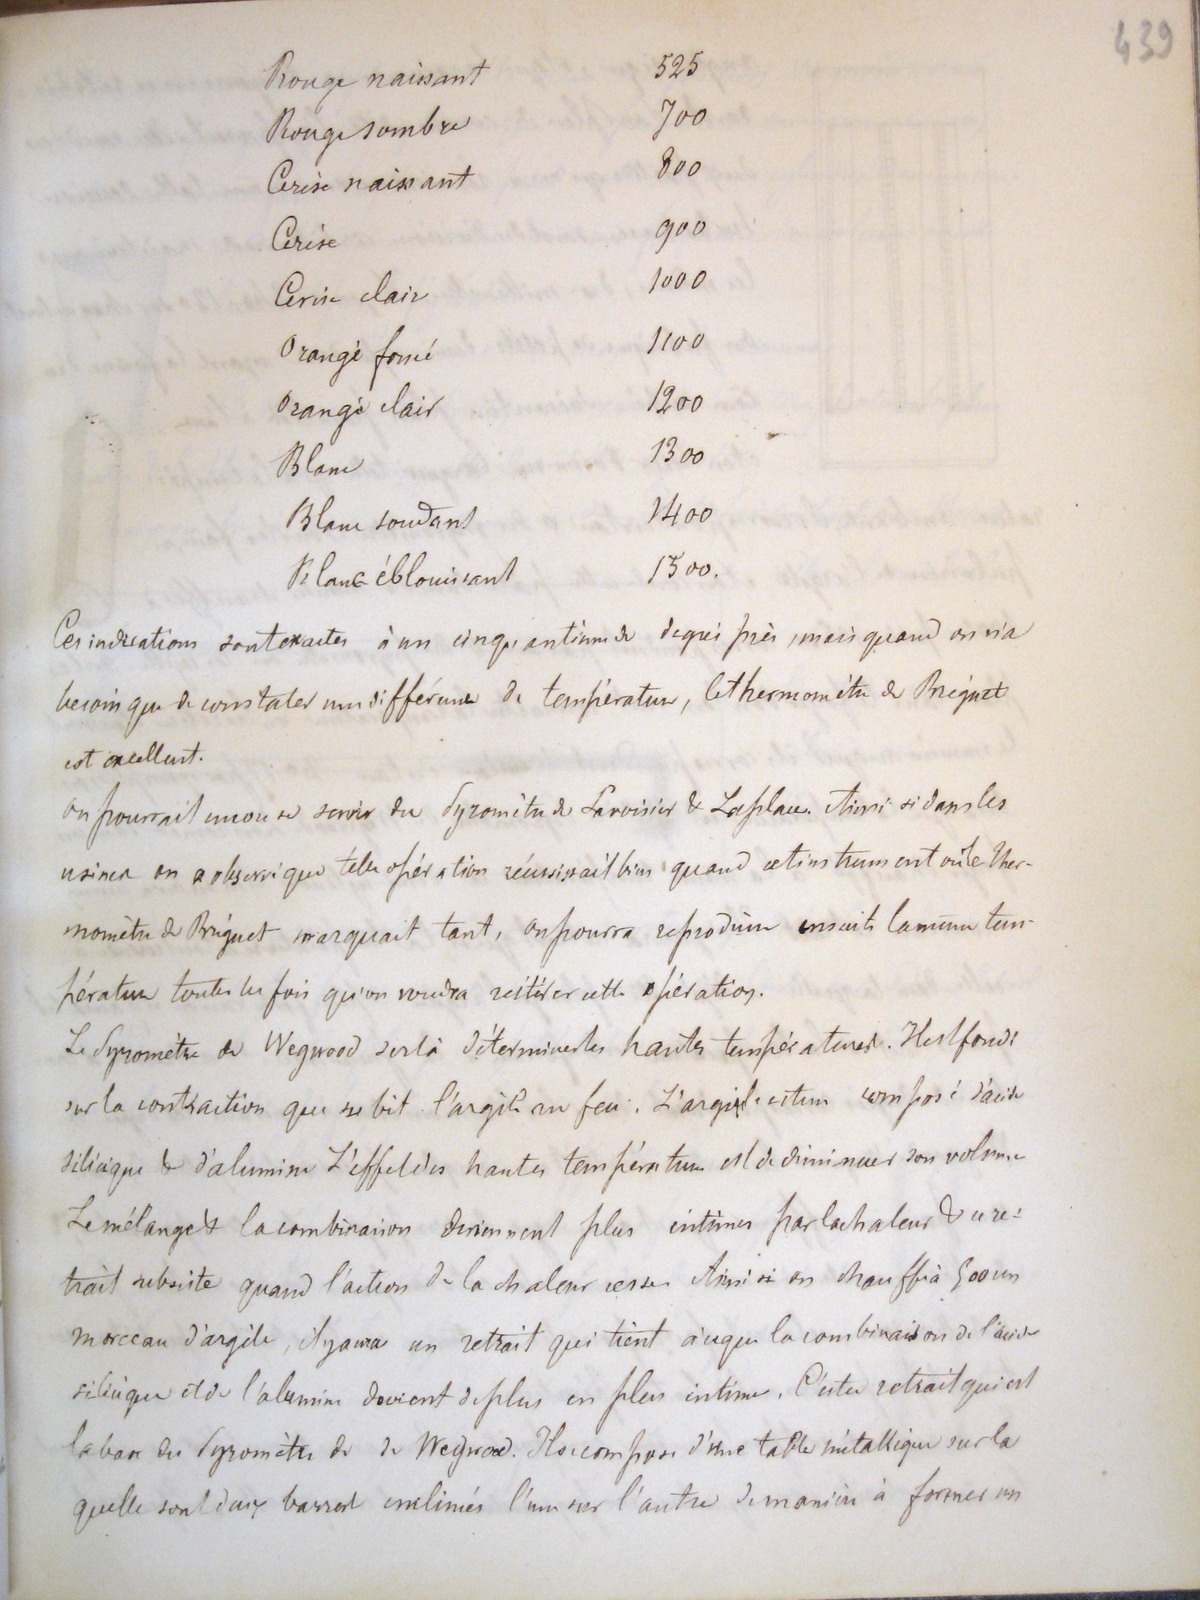 439
Rouge naissant 525
Rouge sombre 700
Cerise naissant 800
Cerise 900
Cerise clair 1000
Orangé foncé 1100
Orangé clair 1200
Blanc 1300
Blanc soudant 1400
Blanc éblouissant 1500.
Ces indications sont exactes à un cinquantième de degré près, mais quand on n'a
besoin que de constater une différence de température, le thermomètre de Bréguet
est excellent.
On pourrait encore se servir du Pyromètre de Lavoisier & Laplace. Ainsi si dans les
usines on a observé que telle opération réussissait bien quand cet instrument ou le ther-
momètre de Bréguet marquait tant, on pourra reproduire ensuite la même tem-
pérature toutes les fois qu'on voudra réitérer cette opération.
Le Pyromètre de Wegwood sert à déterminer les hautes températures. Il est fondé
sur la contraction que subit l'argile au feu. L'argile est un composé d'acide
silicique & d'alumine L'effet des hautes température est de diminuer son volume
Le mélange & la combinaison deviennent plus intimes par la chaleur & ce re-
trait subsiste quand l'action de la chaleur cesse. Ainsi si on chauffe à 500 un
morceau d'argile, il y aura un retrait qui tient à ce que la combinaison de l'acide
silicique et de l'alumine devient de plus en plus intime. C'est ce retrait qui est
la base du Pyromètre de de Wegwood. Il se compose d'une table métallique sur la
quelle sont deux barres inclinées l'une sur l'autre de manière à former un